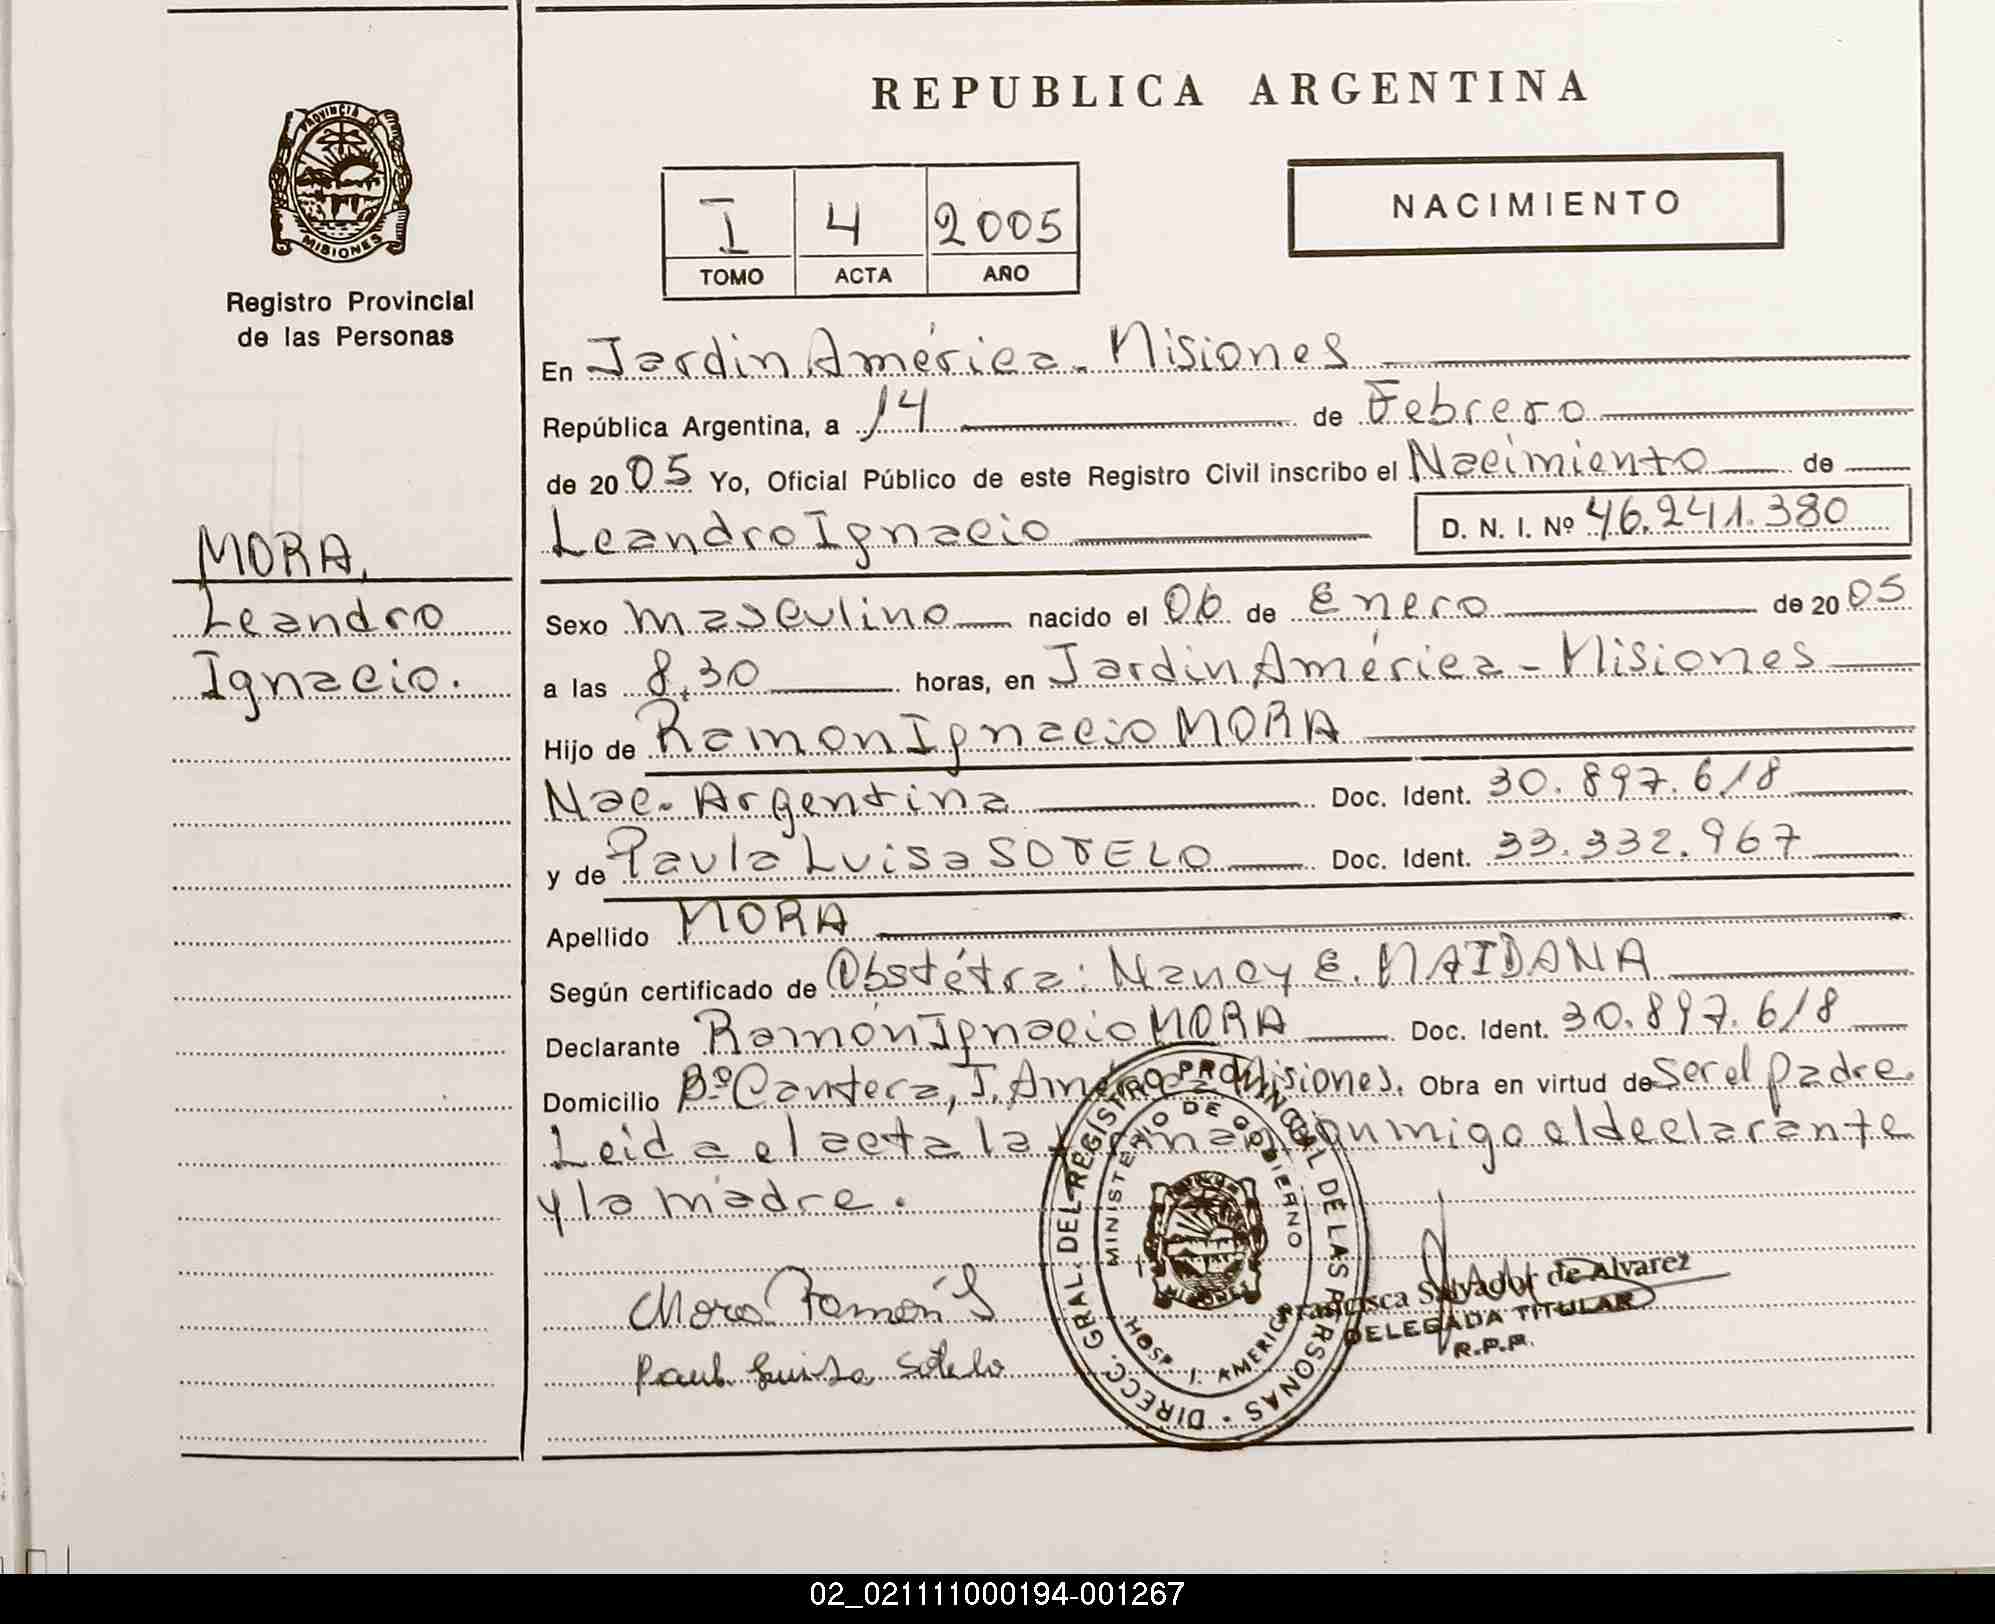 PROVINCIA DE
MISIONES
Registro Provincial
de las Personas
MORA,
Leandro
Ignacio.
REPUBLICA ARGENTINA
I 4 2005
TOMO ACTA AÑO
NACIMIENTO
En Jardin América - Misiones
República Argentina, a 14 de Febrero
de 2005 Yo, Oficial Público de este Registro Civil inscribo el Nacimiento de
Leandro Ignacio D. N. I. Nº 46.241.380
Sexo masculino nacido el 06 de Enero de 2005
a las 8,30 horas, en Jardin América - Misiones
Hijo de Ramon Ignacio MORA
Nac. Argentina Doc. Ident. 30.897.618
y de Paula Luisa SOTELO Doc. Ident. 33.332.967
Apellido MORA
Según certificado de Obstétra: Nancy E. MAIDANA
Declarante Ramón Ignacio MORA Doc. Ident. 30.897.618
Domicilio Bº Cantera, J. América Misiones. Obra en virtud de Ser el padre.
Leida el acta la firman conmigo el declarante
y la madre.
Mora Ramón I
Paula Luisa Sotelo
DIRECC. GRAL. DEL REGISTRO PROVINCIAL DE LAS PERSONAS
MINISTERIO DE GOBIERNO
HOSP. J. AMERICA
MISIONES
Francisca Salvador de Alvarez
DELEGADA TITULAR
R.P.P.
02_021111000194-001267